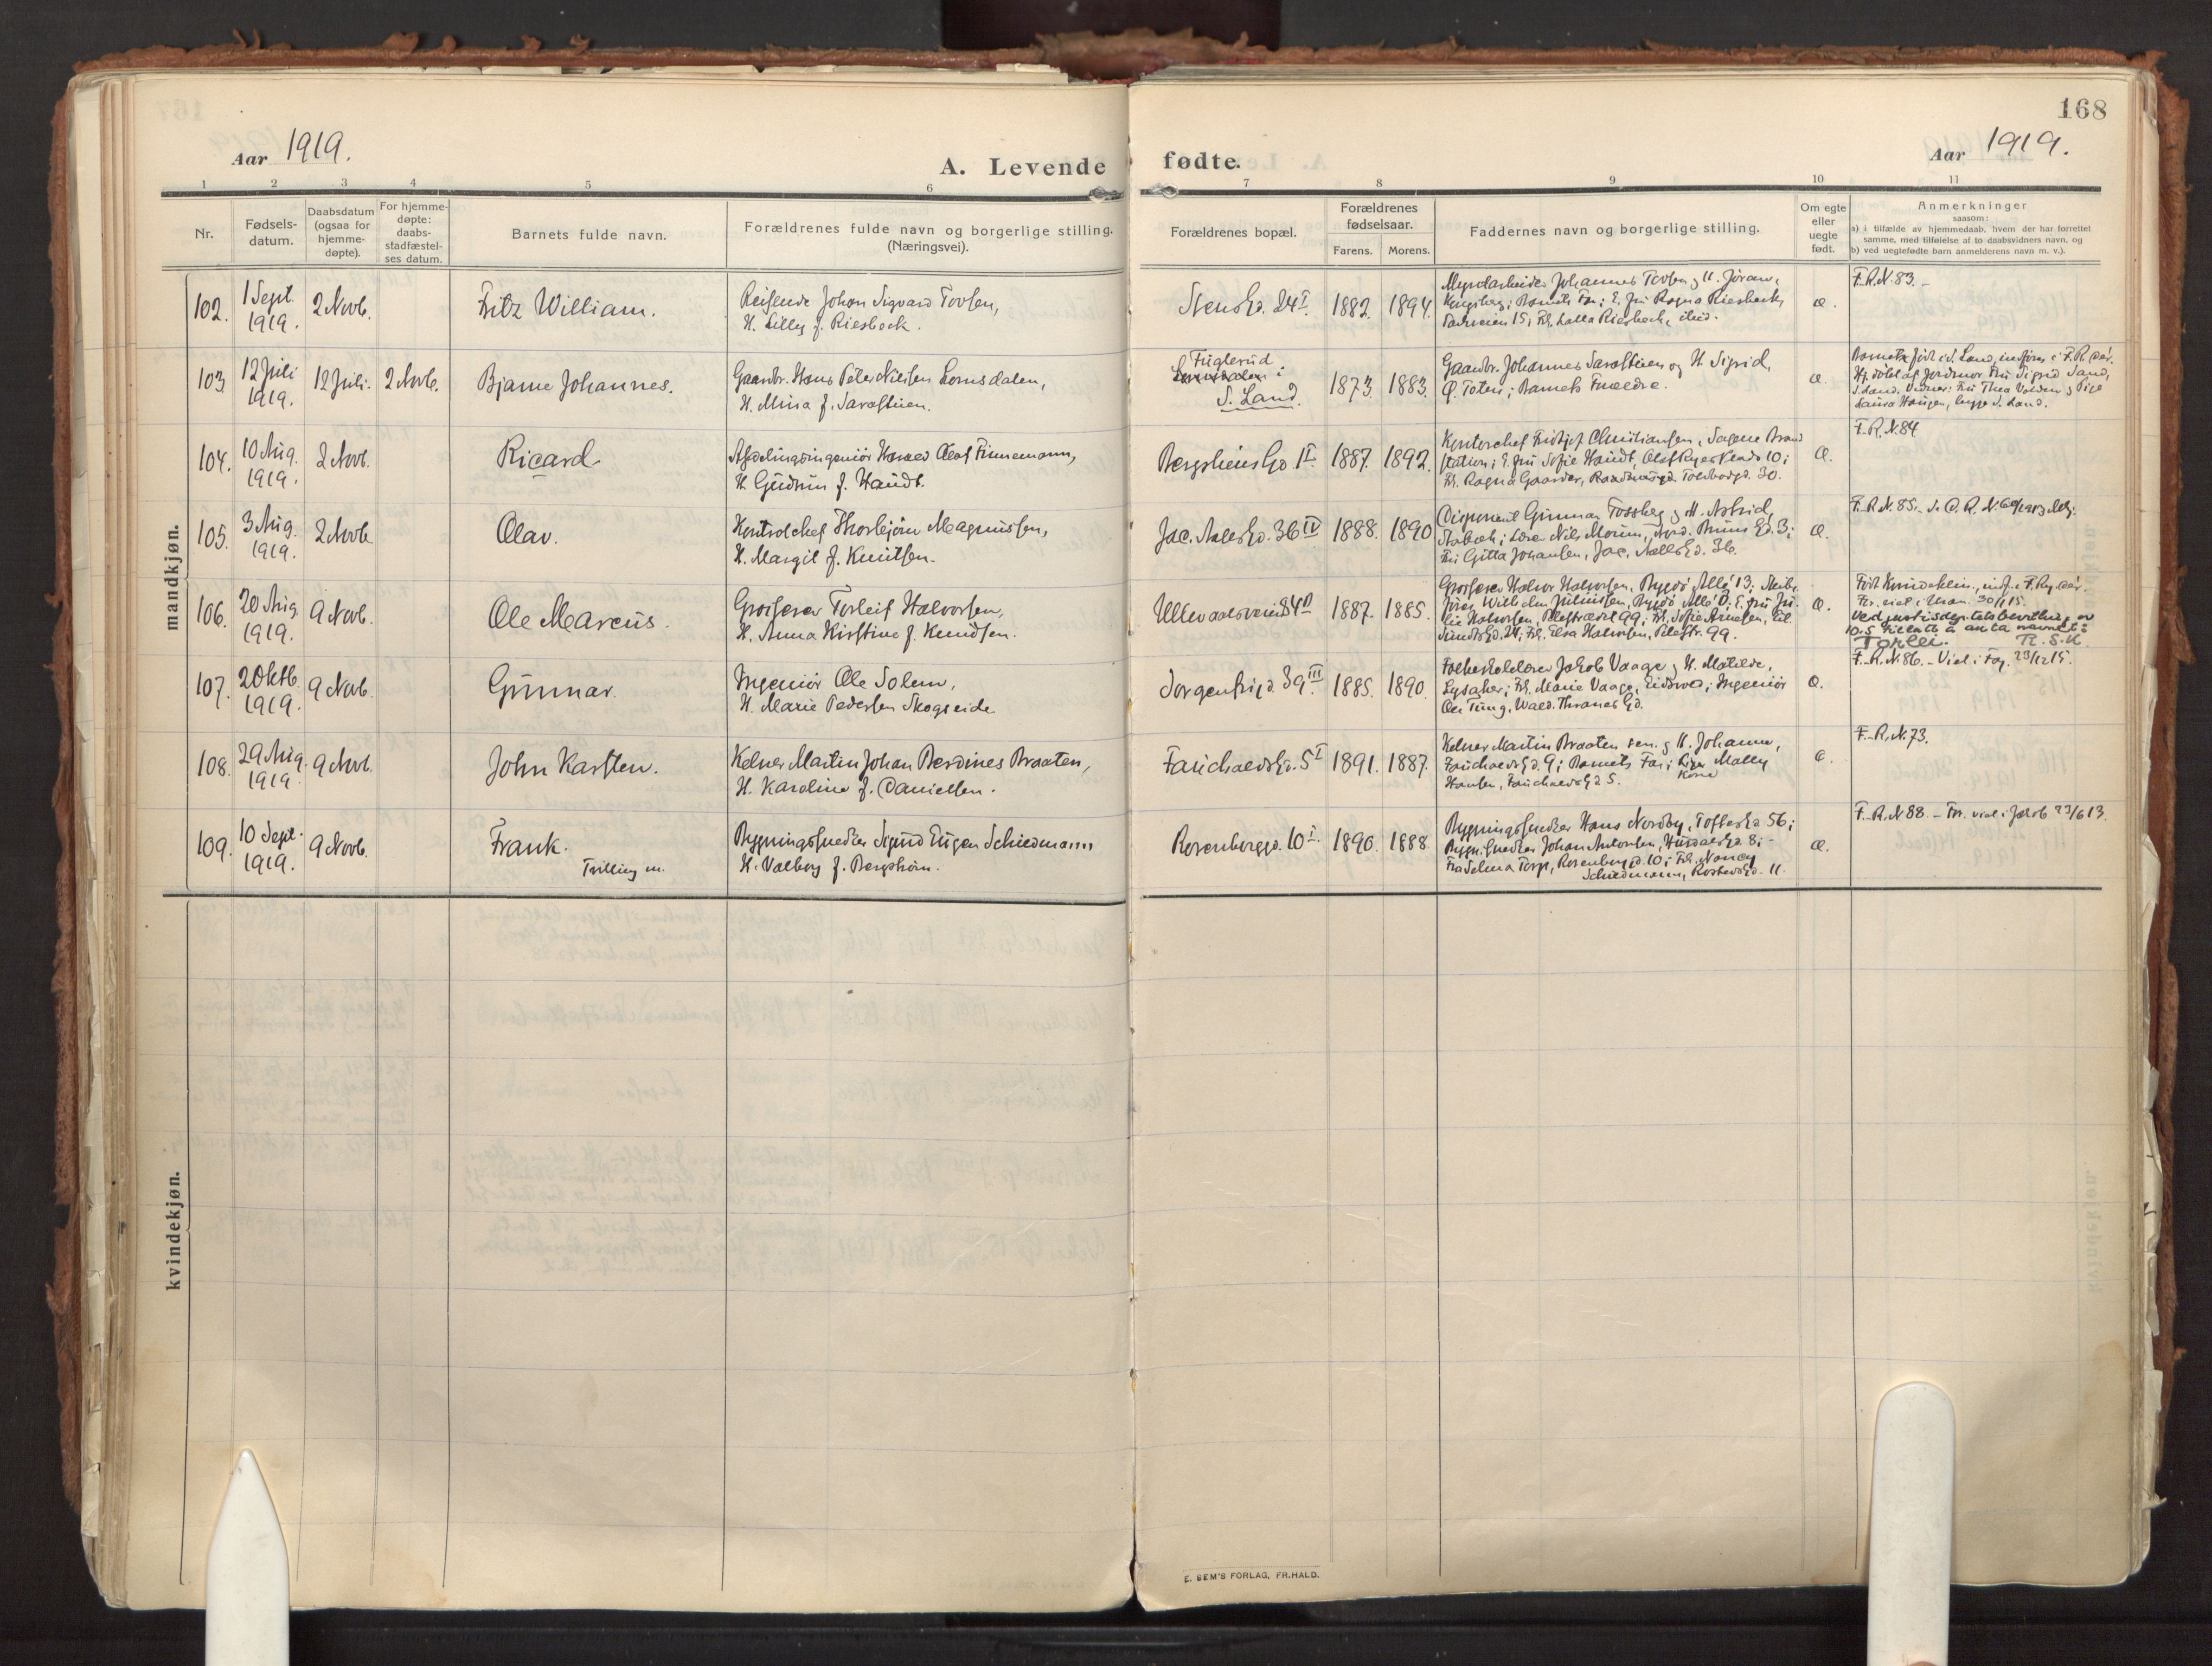 168
Aar 1919.
A. Levende fødte.
Aar 1919.
1 2 3 4 5 6 7 8 9 10 11
Nr.
Fødsels-
datum.
Daabsdatum
(ogsaa for
hjemme-
døpte).
For hjemme-
døpte:
daabs-
stadfæstel-
ses datum.
Barnets fulde navn.
Forældrenes fulde navn og borgerlige stilling.
(Næringsvei).
Forældrenes bopæl.
Forældrenes
fødselsaar.
Farens. Morens.
Faddernes navn og borgerlige stilling.
Om egte
eller
uegte
født.
Anmerkninger
saasom:
a) i tilfælde av hjemmedaab, hvem der har forrettet
samme, med tilføielse af to daabsvidners navn, og
b) ved uegtefødte barn anmelderens navn m. v.).
mandkjøn.
102.
1 Sept.
1919.
2 Novb.
Fritz William.
Reisende Johan Sigvard Tovsen,
H. Lilly f. Riesbeck.
Stensgd. 24 I.
1882. 1894.
Johannes Tovsen og H. Jöran,
Kongsberg; Barnets Far; E. Fru Ragna Riesbeck,
15; Frk. Lalla Riesbeck, ibid.
æ.
F.R.N. 83.
103
12 Juli
1919.
12 Juli.
2 Novb.
Bjarne Johannes.
Gaardbr. Hans Peter Nielsen Lomsdalen,
H. Mina f.
Fuglerud
i
S. Land.
1873. 1883.
Gaardbr. Johannes og H. Sigrid,
Ø. Toten; Barnets Forældre.
æ.
Barnet född i S. Land, indföres i F.R. der.
Hj. döbt af Jordmor Fru Sigrid Sand,
S. Land. Vidner: Fru Thea Volden og Pige
Laura Haugen, begge S. Land.
104.
10 Aug.
1919.
2 Novb.
Ricard
Afdelingsingeniör Olaf Finnemann,
H. Gudrun f. Haudt.
Bergsliens Gd 1 I.
1887. 1892.
Kontorchef Fridtjof Christiansen, Sagene Brand
station; E. Fru Sofie Haudt, Olaf Ryes Plads 10;
Frk. Ragna Gaarder, Toldbodgd. 30.
æ.
F.R.N. 84
105.
3 Aug.
1919.
2 Novb
Olav.
Kontrolchef Thorbjörn Magnussen,
H. Margit f. Knutsen.
Jac. Aallsgd. 36 IV
1888. 1890
Disponent Gunnar Fossberg og H. Astrid,
Stabæk; Lærer Nils Morum, Nord. Bruns Gd. 3;
Fru Gitta Johansen, Jac. Aalls Gd. 36.
æ.
F.R.N. 85.
106.
20 Aug.
1919.
9 Novb.
Ole Marcus.
Grosserer Torleif Halvorsen,
H. Anna Kirstine f. Knudsen.
Ullevaalsveien 84
1887. 1885.
Grosserer Halvor Halvorsen, Bygdö Allé 13; Skibs-
förer Wilhelm Juliussen, Bygdö Allé; E. Fru Ju-
lie Halvorsen, Pilestrædet 99; Fr. Sofie Arnesen, Eil.
Sundts Gd. 24; Frk. Elsa Halvorsen, Pilestr. 99.
æ.
Ved justisdep.telsbevilling av
10.5 tillatt å anta navnet:
Torlei. R.S.K.
107.
2 Oktb.
1919.
9 Novb.
Gunnar.
Ingeniör Ole Solem,
H. Marie Pedersen Skogseide
Jorgenfrigd. 39 III
1885. 1890.
Folkeskolelærer Jakob Vaage og H. Matilde,
Lysaker; Frk. Marie Vaage, Eidsvold; Ingeniör
Ole Tung, Wald. Thranes Gd.
æ.
F.R.N. 86. – Viet i Fag. 23/12 15.
108.
29 Aug.
1919.
9 Novb.
John Karsten.
Kelner Martin Johan Berdines Braaten,
H. Karoline f. Danielsen.
Fauchaldsgd. 5 I
1891. 1887.
Kelner Martin Braaten sen. og H. Johanne,
Fauchaldsgd. 9; Barnets Far; Molly
Kone
Hansen, Fauchaldsgd 5.
æ.
F.R.N. 73.
109.
10 Sept.
1919.
9 Novb.
Frank.
Tvilling m.
Bygningssnedker Sigurd Eugen Schiedmann
H. Valborg f. Bergström.
Rosenborggd. 10 I.
1890. 1888.
Bygningssnedker Hans Nordby, Toftesgd 56;
Bygn. Snedker Johan Antonsen, Hurdalsgd. 8;
Fru Selma Torp, Rosenborggd. 10; Frk. Nancy
Schiedmann, 11.
æ.
F.R.N. 88. – For. viet i Jakob 23/6 13.
kvindekjøn.
E. SEM'S FORLAG, FR.HALD.